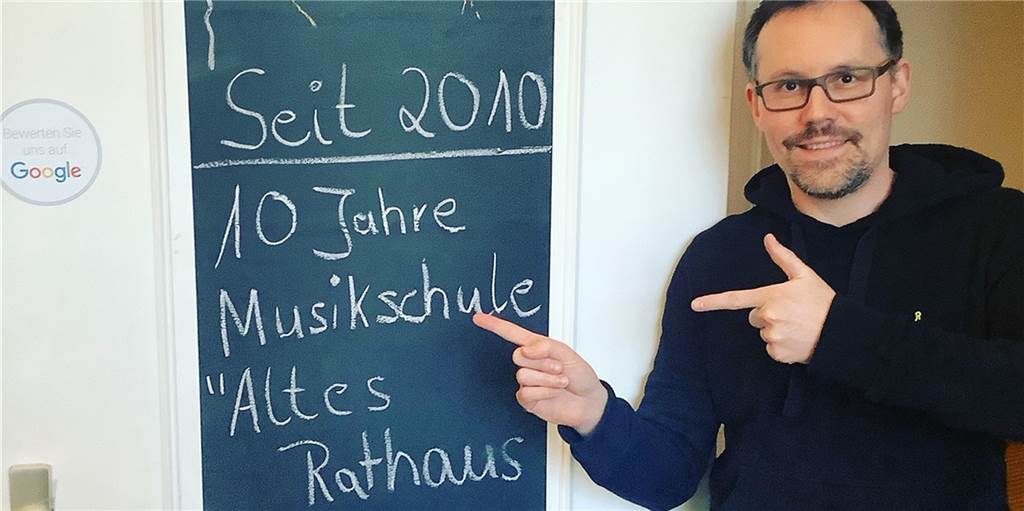 Bewerten Sie
uns auf
Google
Seit 2010
10 Jahre
Musikschule
"Altes
Rathaus